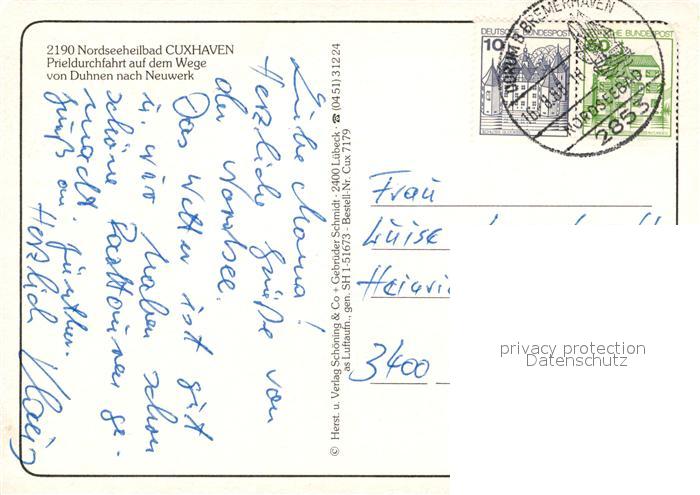 2190 Nordseeheilbad CUXHAVEN
Prieldurchfahrt auf dem Wege
von Duhnen nach Neuwerk
Liebe Mama!
Herzliche Grüße von
der Nordsee.
Das Wetter ist gut
u. wir haben schon
schöne Radtouren ge-
macht.
Herzlich
© Herst. u. Verlag Schöning & Co + Gebrüder Schmidt · 2400 Lübeck · ☎ (04 51) 3 12 24
as Luftaufn., gen. SH 1-51673 - Bestell-Nr. Cux 7179
DEUTSCHE BUNDESPOST
10
BUNDESPOST
DORUM B BREMERHAVEN
NORDSEEBAD
2853
Frau
Luise
3400
privacy protection
Datenschutz